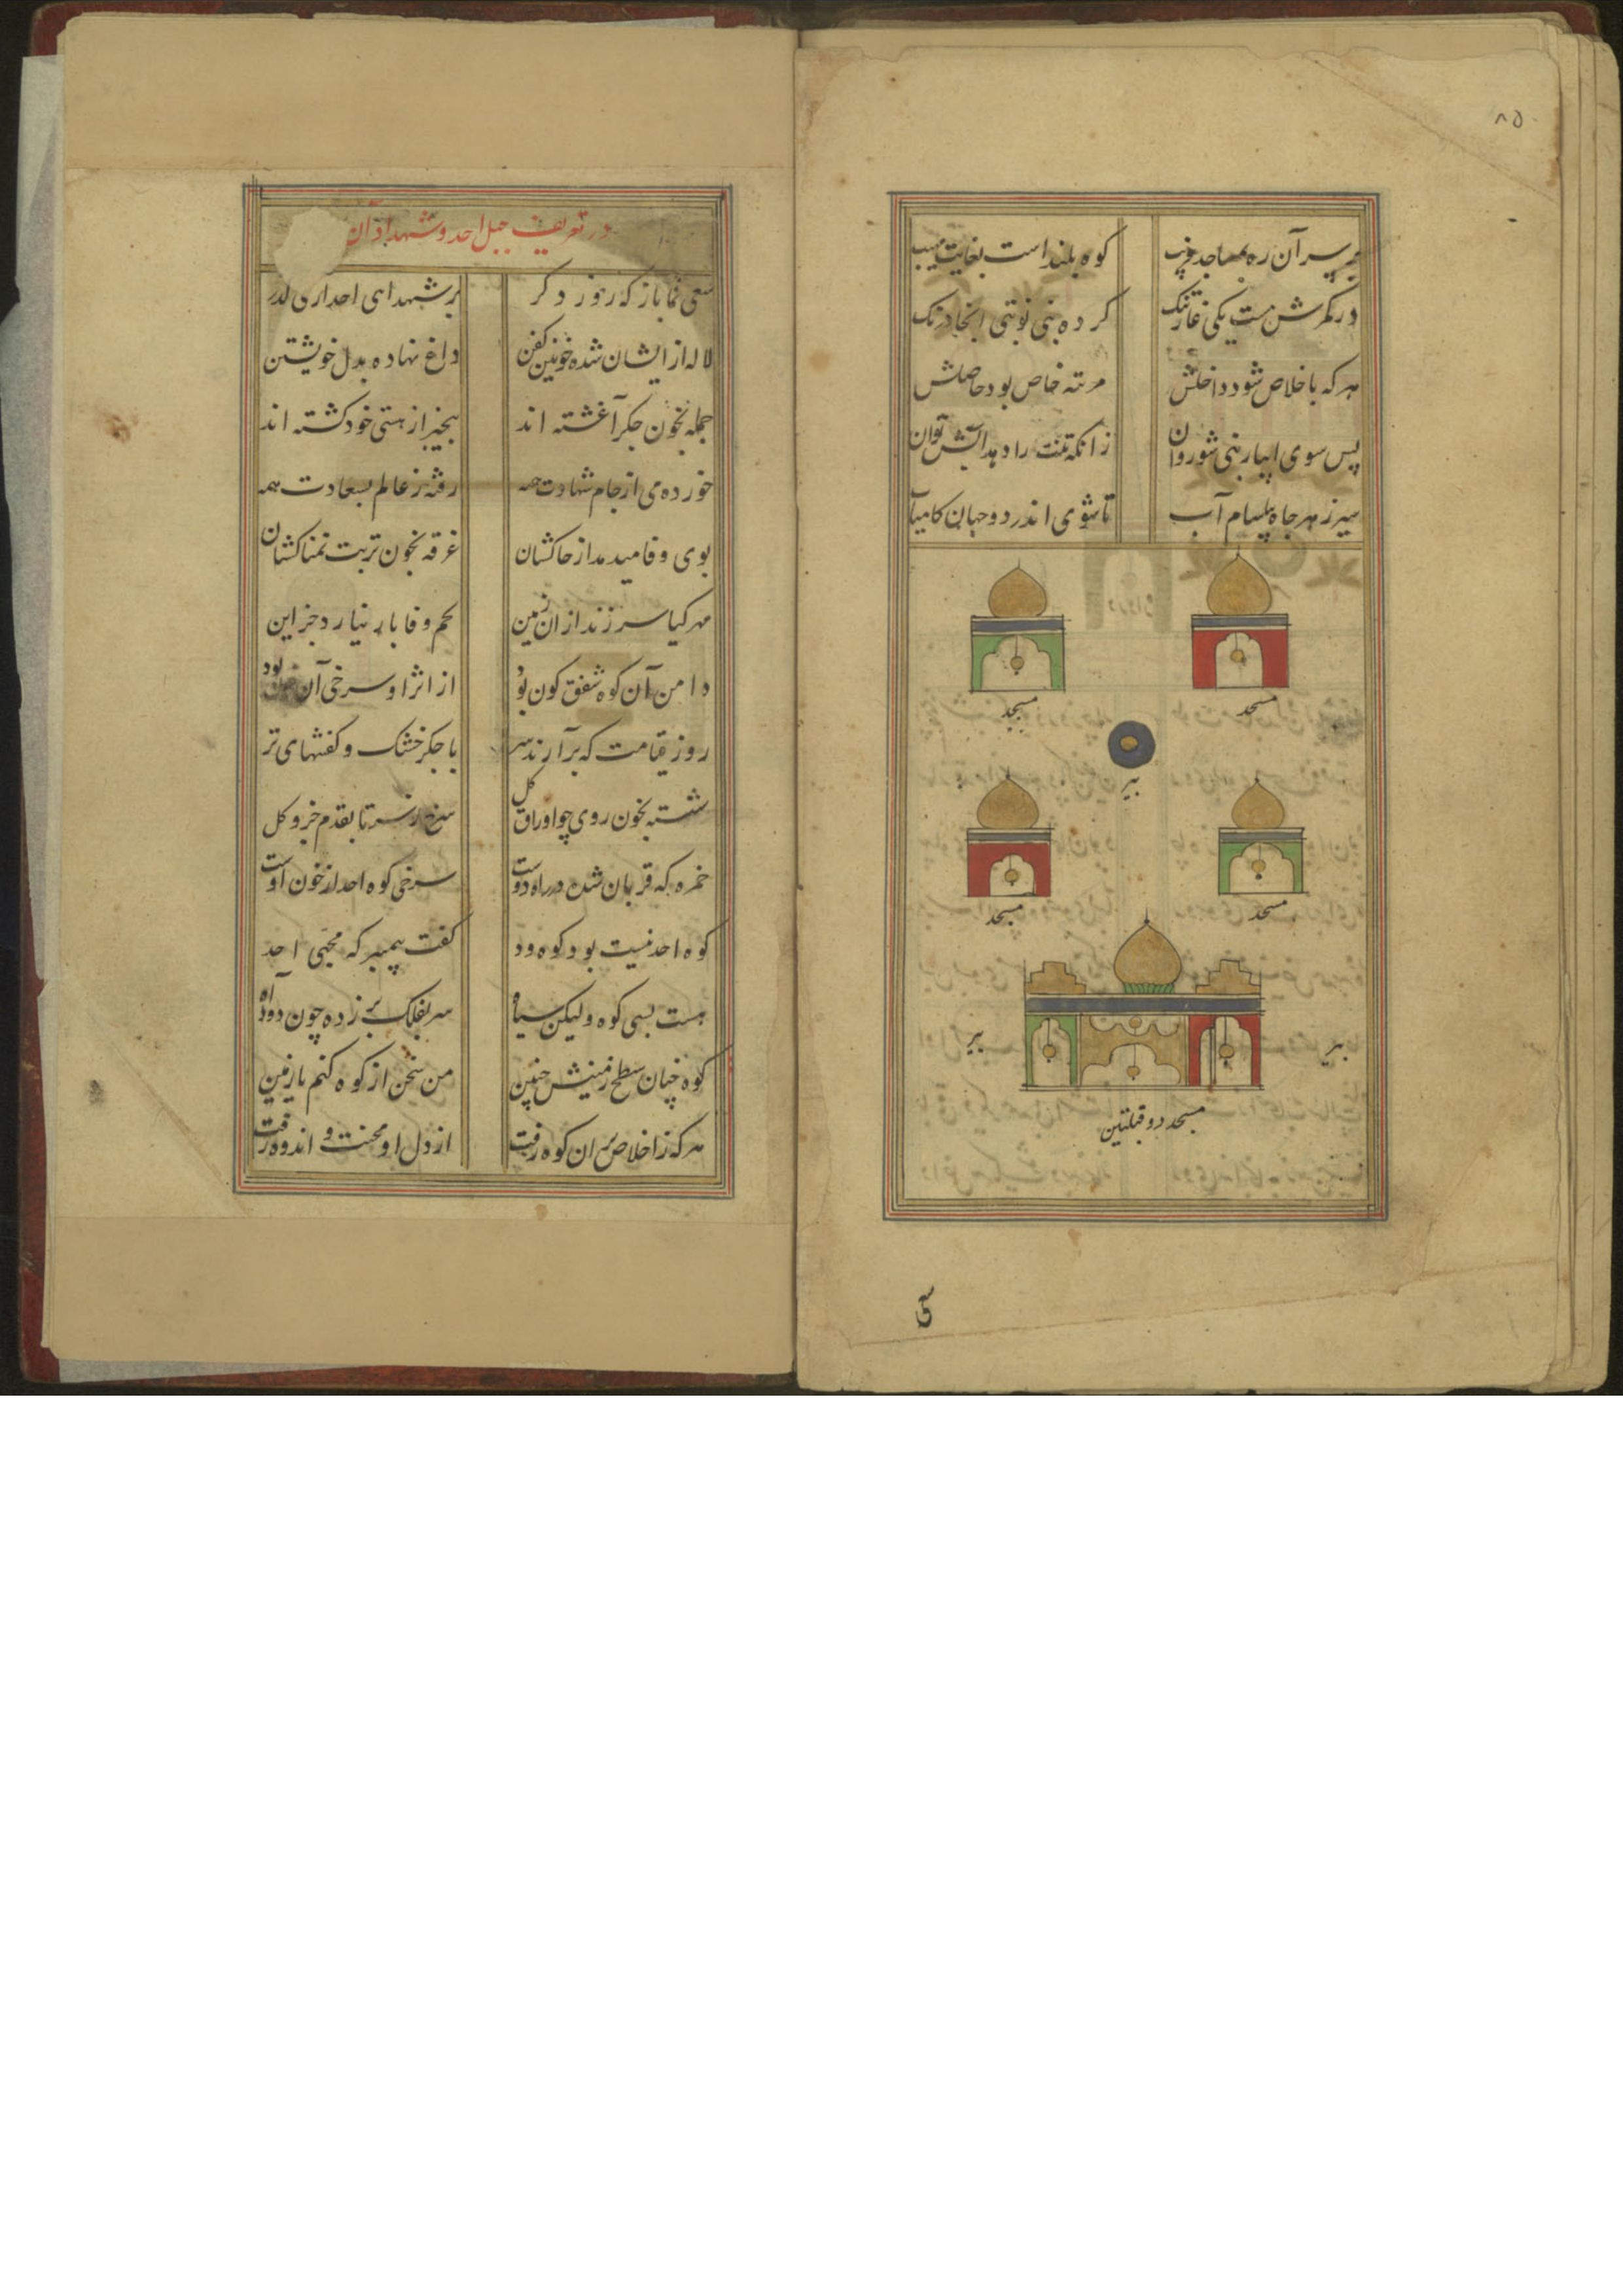 ۸۵
بر سر آن ره بمساجد قریب
کوه بلند است بغایت مهیب
در کمرش هست یکی غار تنک
کرده نبی نوبتی انجا درنک
هر که باخلاص شود داخلش
مرتبه خاص بود حاصلش
پس سوی ابیار نبی شو روان
زانکه تنت را دهد آبش توان
سیر ز هر چاه بیاشام آب
تا شوی اندر دو جهان کامیاب
مسجد
مسجد
بیر
مسجد
مسجد
بیر
بیر
مسجد دو قبلتین
سعی
در تعریف جبل احد و شهداء آن
سعی نما باز که روز دکر
بر شهدای احد اری کذر
لاله از ایشان شده خونین کفن
داغ نهاده بدل خویشتن
جمله بخون جکر آغشته اند
بیخبر از هستی خود کشته اند
خورده می از جام شهادت همه
رفته ز عالم بسعادت همه
بوی وفا میدمد از خاکشان
غرقه بخون تربت نمناکشان
مهر کیا سر زند از ان زمین
تخم وفا بار نیارد جز این
دامن آن کوه شفق کون بود
از اثر او سرخی آن بود
روز قیامت که برآرند سر
با جکر خشک و کفنهای تر
شسته بخون روی چو اوراق کل
سرخ ز سر تا بقدم جزو کل
حمزه که قربان شده در راه دوست
سرخی کوه احد از خون اوست
کوه احد نیست بود کوه ود
کفت پیمبر که یحبنی احد
هست بسی کوه ولیکن سیاه
سر بفلک بر زده چون دود آه
کوه چنان سطح زمینش چنین
من سخن از کوه کنم یا زمین
هر که ز اخلاص بران کوه رفت
از دل او محنت و اندوه رفت